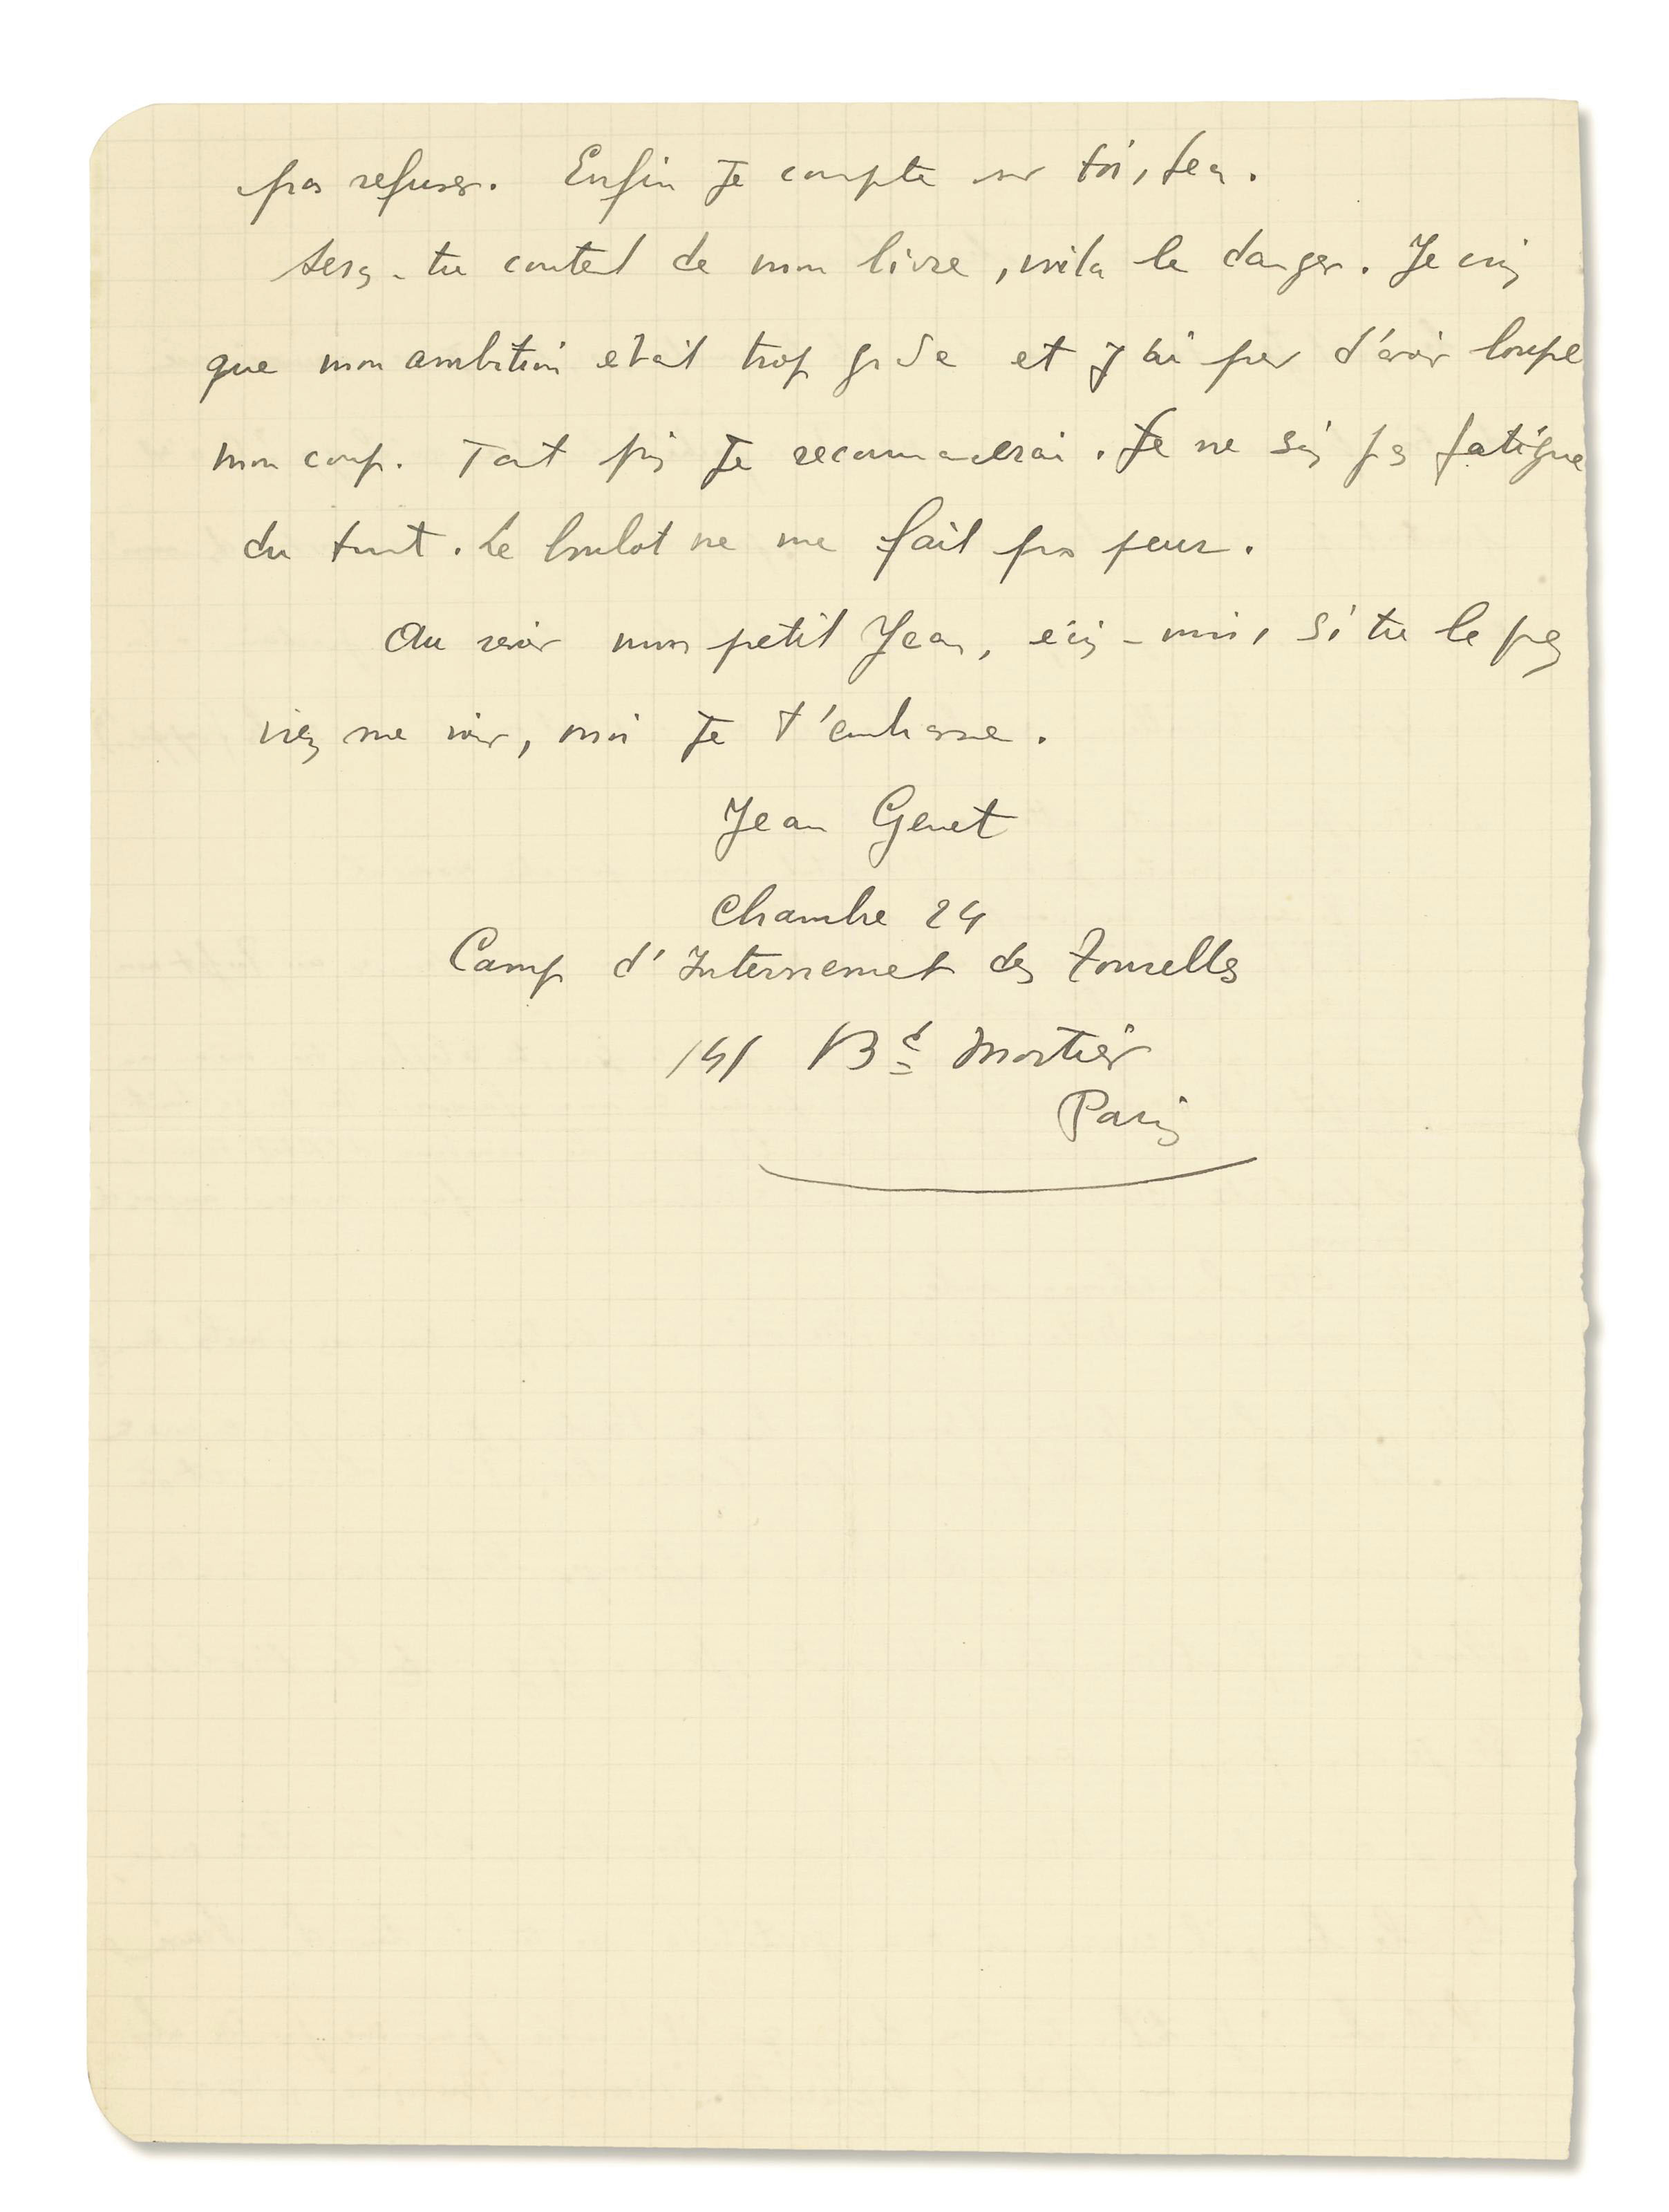 pas refuser. Enfin je compte sur toi, Jean.
Seras-tu content de mon livre, voilà le danger. Je crois
que mon ambition etait trop grande et j'ai peur d'avoir loupé
mon coup. Tant pis je recommencerai. Je ne suis pas fatigué
du tout. Le boulot ne me fait pas peur.
Au revoir mon petit Jean, écris-moi, si tu le peux
viens me voir, moi je t'embrasse.
Jean Genet
Chambre 24
Camp d'Internement des Tourelles
141 Bd Mortier
Paris